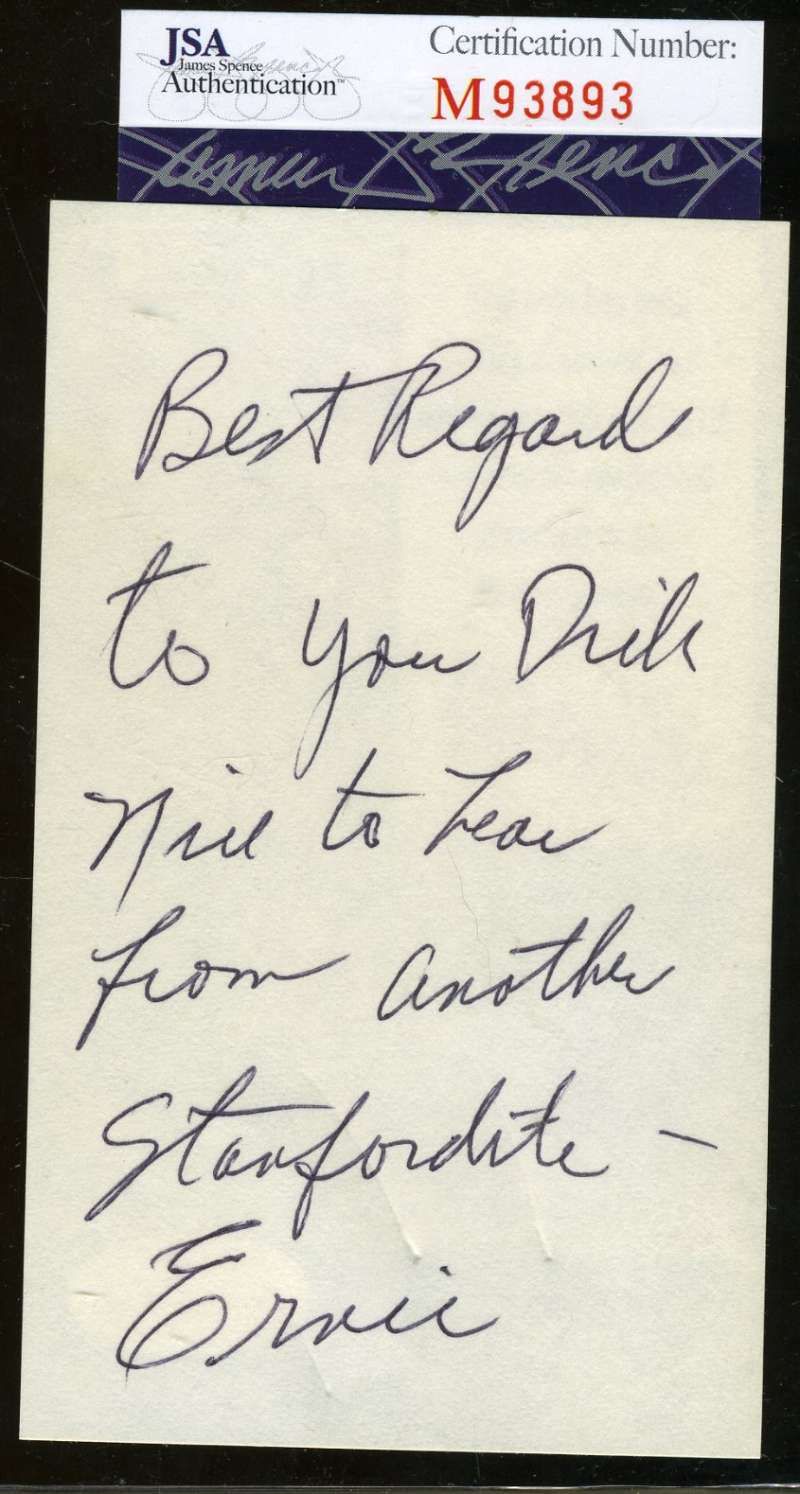 JSA
James Spence
Authentication™
Certification Number:
M93893
Best Regard
to you Dick
Nice to hear
from another
Stanfordite –
Ernie